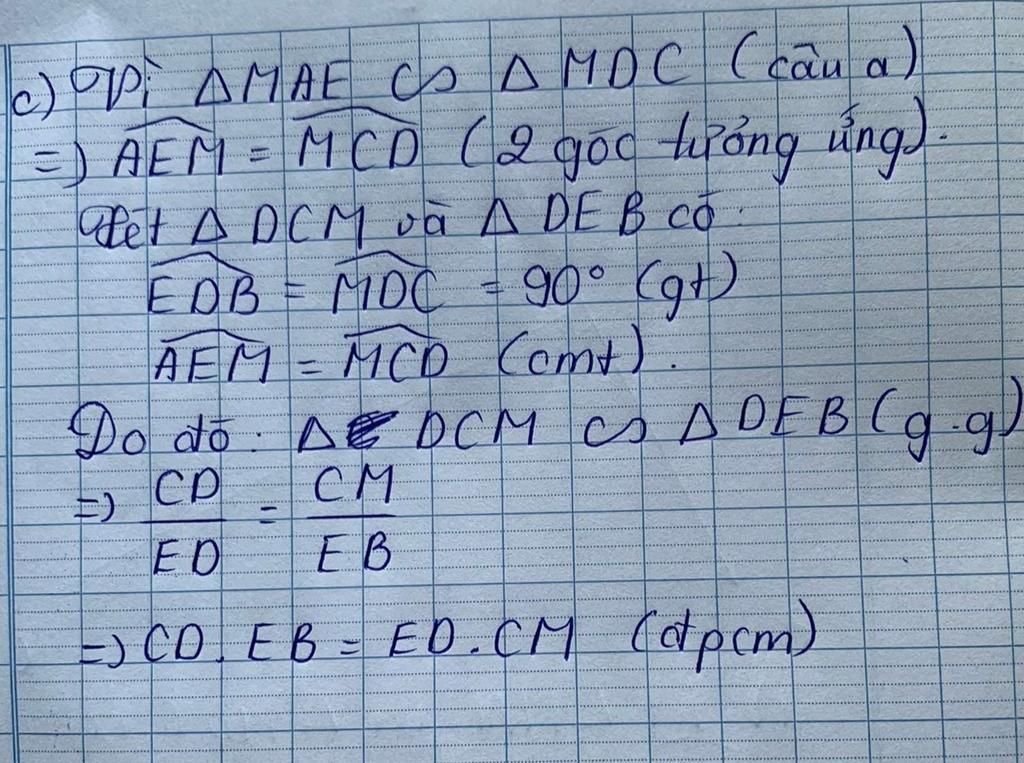 c) Vì Δ MAE ∽ Δ MDC (câu a)
=) \widehat{AEM} = \widehat{MCD} (2 góc tương ứng).
Xét Δ DCM và Δ DEB có:
\widehat{EDB} = \widehat{MDC} = 90° (gt)
\widehat{AEM} = \widehat{MCD} (cmt).
Do đó: Δ DCM ∽ Δ DEB (g.g)
=) \frac{CD}{ED} = \frac{CM}{EB}
=) CD. EB = ED. CM (đpcm)